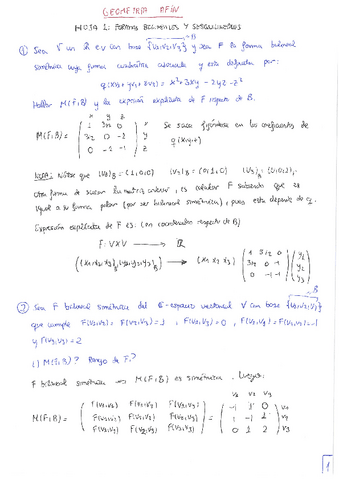 GEOMETRÍA AFÍN
HOJA 1: FORMAS BILINEALES Y SESQUILINEALES
① Sea V un k ev con base {v₁,v₂,v₃} = B y sea F la forma bilineal
simétrica cuya forma cuadrática asociada y esta definida por:
q(xv₁+yv₂+zv₃) = x²+3xy-2yz-z²
Hallar M(F;B) y la expresión explícita de F respecto de B.
x y z
M(F;B) = ( 1 3/2 0 ) x
( 3/2 0 -1 ) y
( 0 -1 -1 ) z
Se saca fijándose en los coeficientes de
q(x,y,z)
NOTA: Nótese que (v₁)B = (1,0,0) (v₂)B = (0,1,0) (v₃)B = (0,0,1),
Otra forma de sacar la matriz anterior, es calcular F sabiendo que es
igual a su forma polar (por ser bilineal simétrica), pues esta depende de q.
Expresión explícita de F es: (en coordenadas respecto de B)
F: V×V → ℝ
((x₁,x₂,x₃)B,(y₁,y₂,y₃)B) → (x₁ x₂ x₃) ( 1 3/2 0 ) ( y₁ )
( 3/2 0 -1 ) ( y₂ )
( 0 -1 -1 ) ( y₃ )
② Sea F bilineal simétrica del espacio vectorial V con base {v₁,v₂,v₃} = B
que cumple
y F(v₃,v₃) = 2
i) M(F;B)? Rango de F?
F bilineal simétrica → M(F;B) es simétrica. Luego:
v₁ v₂ v₃
M(F;B) = ( F(v₁,v₁) F(v₁,v₂) F(v₁,v₃) )
( F(v₂,v₁) F(v₂,v₂) F(v₂,v₃) )
( F(v₃,v₁) F(v₃,v₂) F(v₃,v₃) )
1